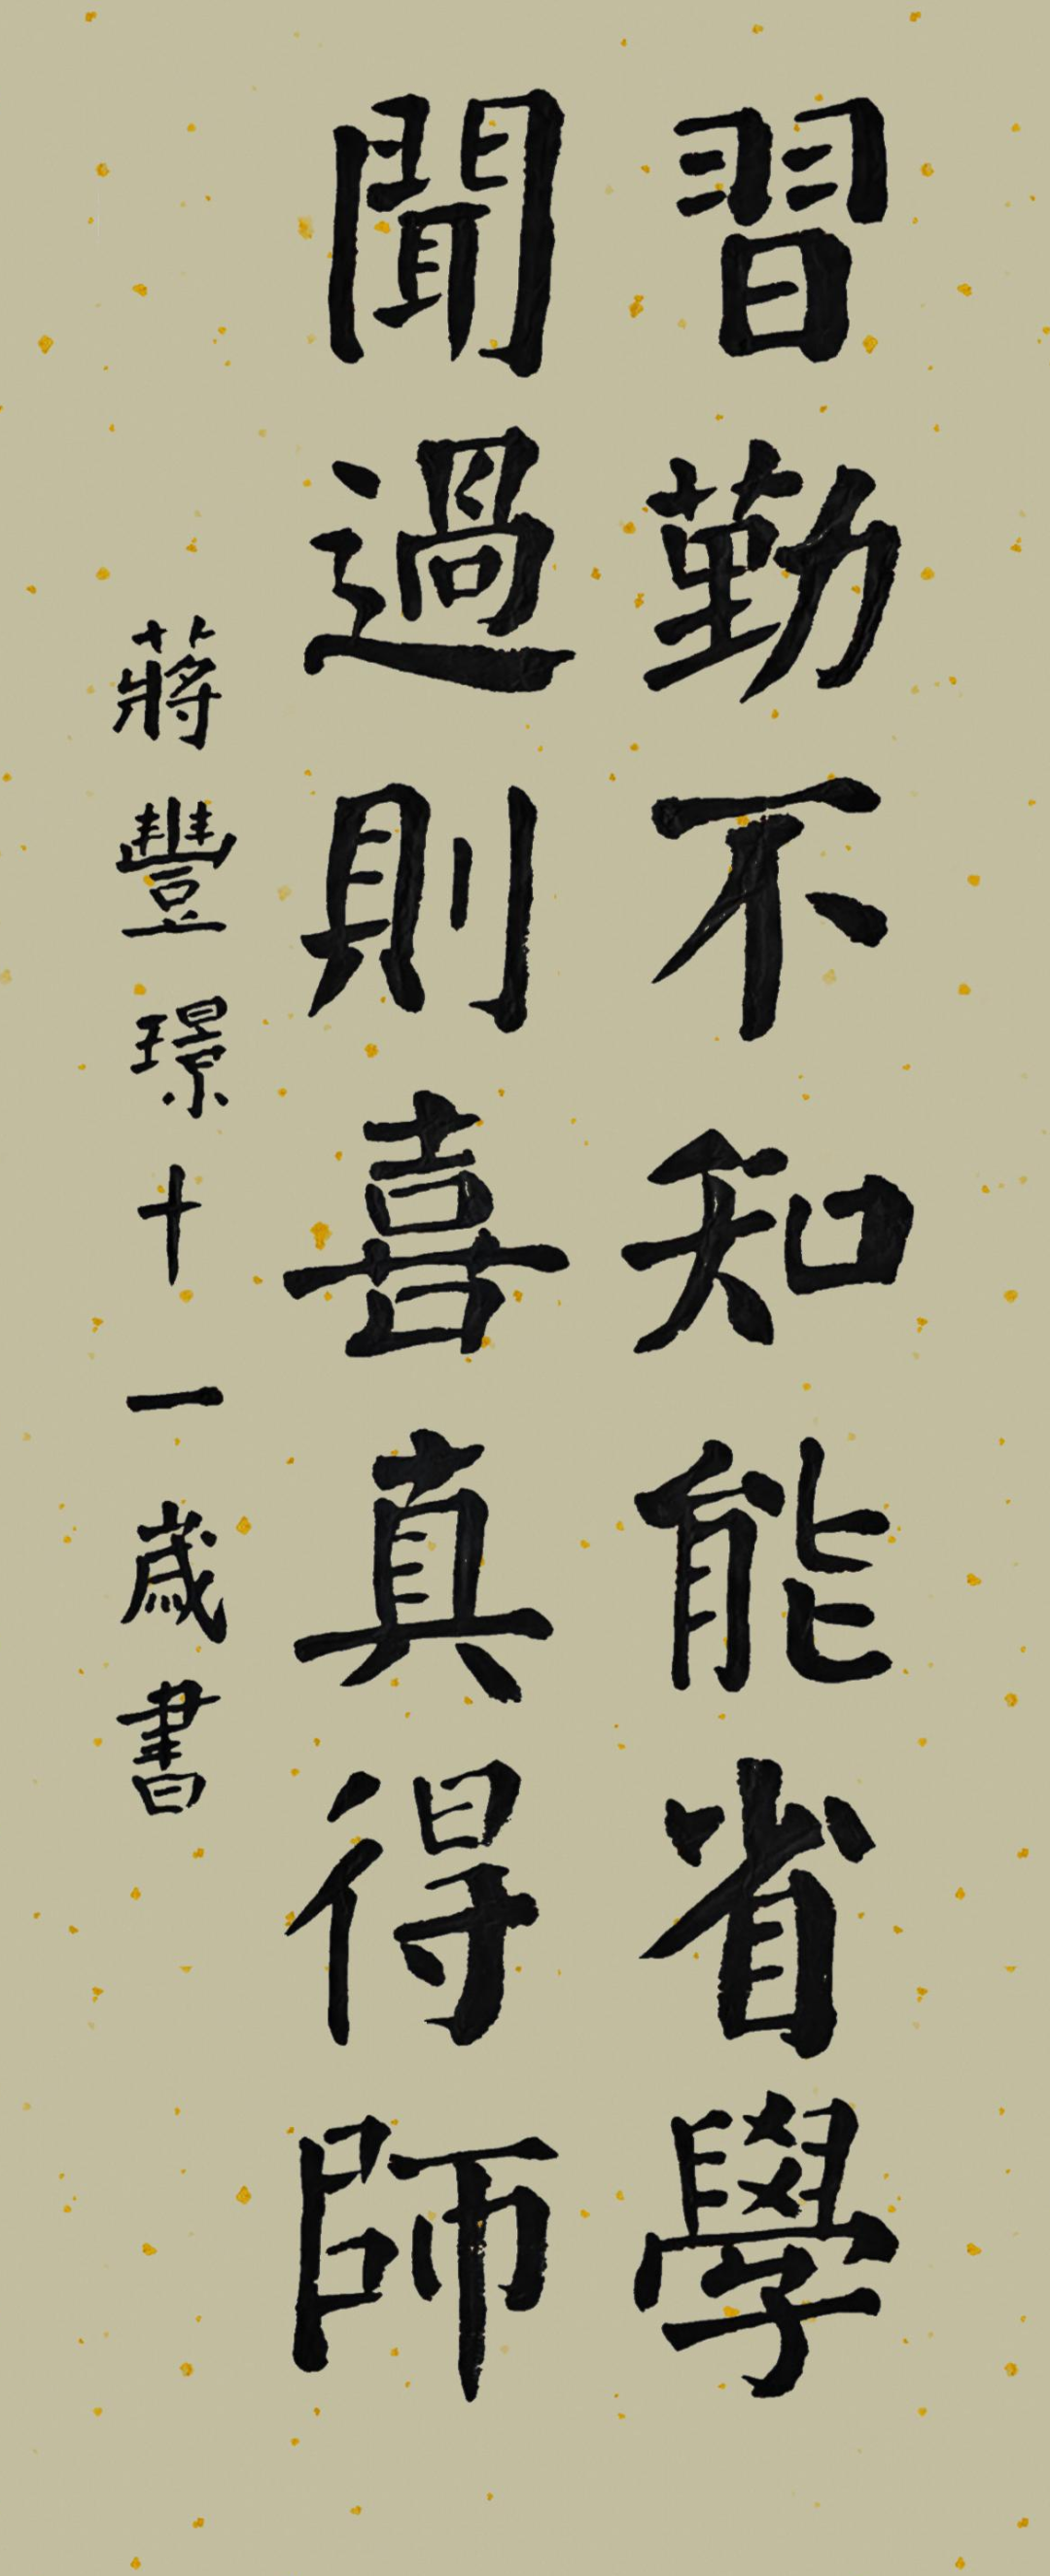 習勤不知能省學
聞過則喜真得師
蔣豐璟十一歲書